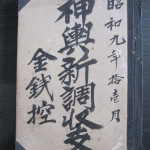 昭和九年拾壱月
神輿新調収支
金銭控